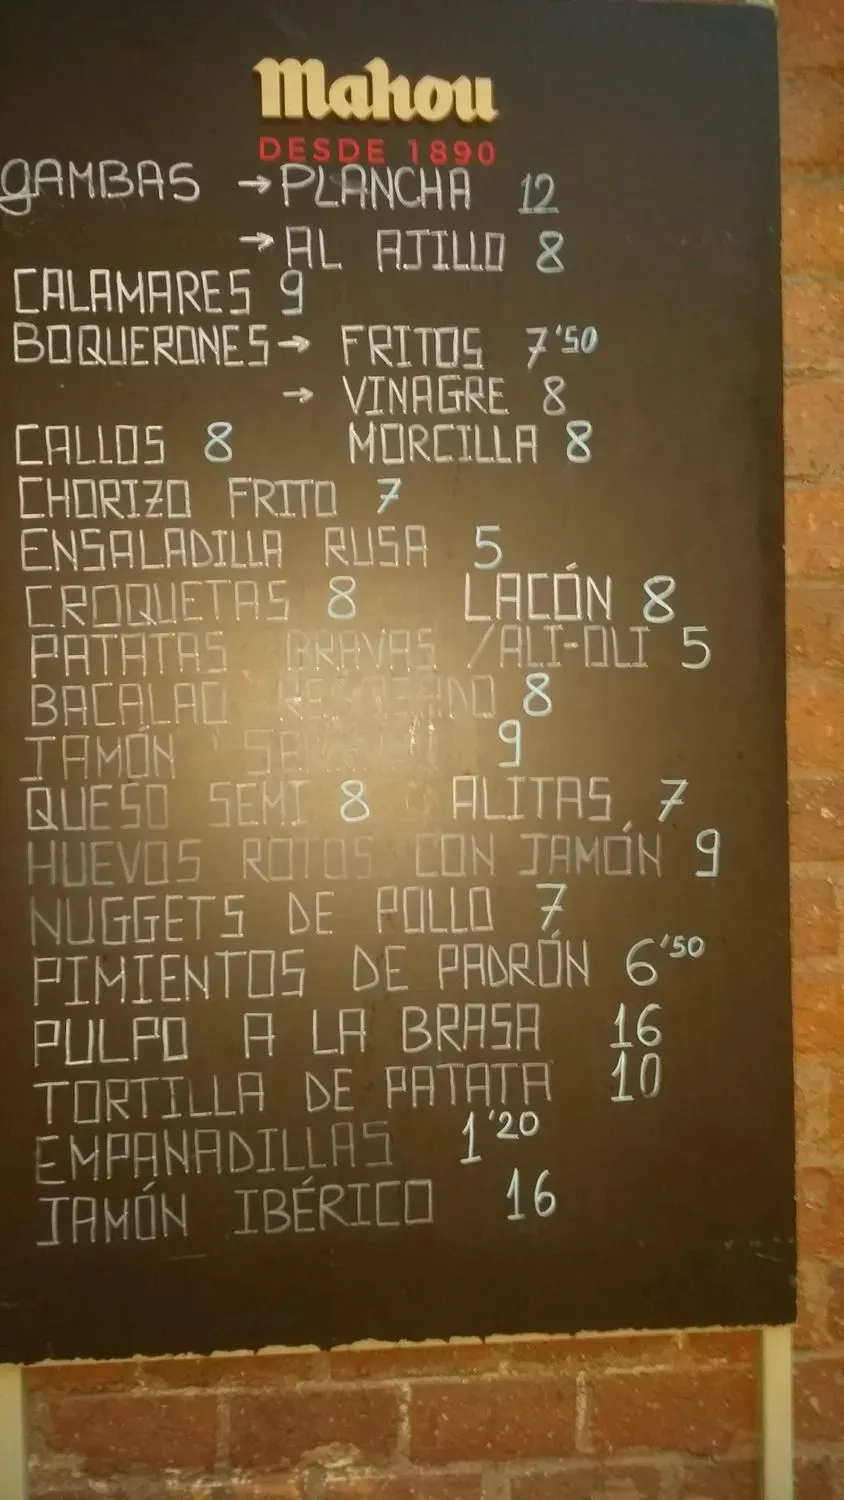 Mahou
DESDE 1890
GAMBAS → PLANCHA 12
→ AL AJILLO 8
CALAMARES 9
BOQUERONES → FRITOS 7'50
→ VINAGRE 8
CALLOS 8 MORCILLA 8
CHORIZO FRITO 7
ENSALADILLA RUSA 5
CROQUETAS 8 LACÓN 8
PATATAS BRAVAS /ALI-OLI 5
BACALAO 8
JAMÓN 9
QUESO SEMI 8 ALITAS 7
HUEVOS ROTOS CON JAMÓN 9
NUGGETS DE POLLO 7
PIMIENTOS DE PADRÓN 6'50
PULPO A LA BRASA 16
TORTILLA DE PATATA 10
EMPANADILLAS 1'20
JAMÓN IBÉRICO 16